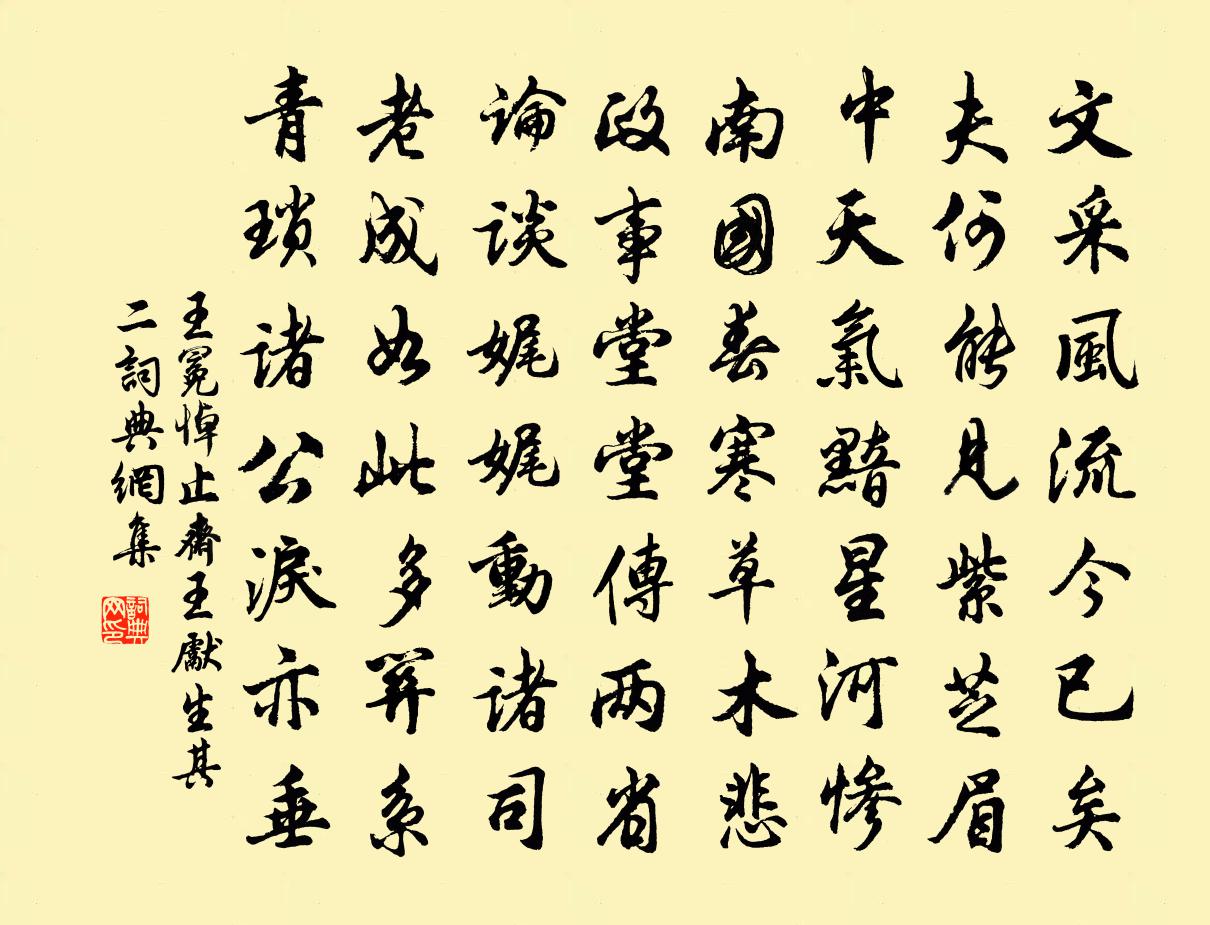 文采風流今已矣
夫何能見紫芝眉
中天氣黯星河慘
南國春寒草木悲
政事堂堂傳兩省
論談娓娓動諸司
老成如此多關系
青瑣諸公淚亦垂
王冕悼止齋王獻生其
二詞典網集
詞典网印